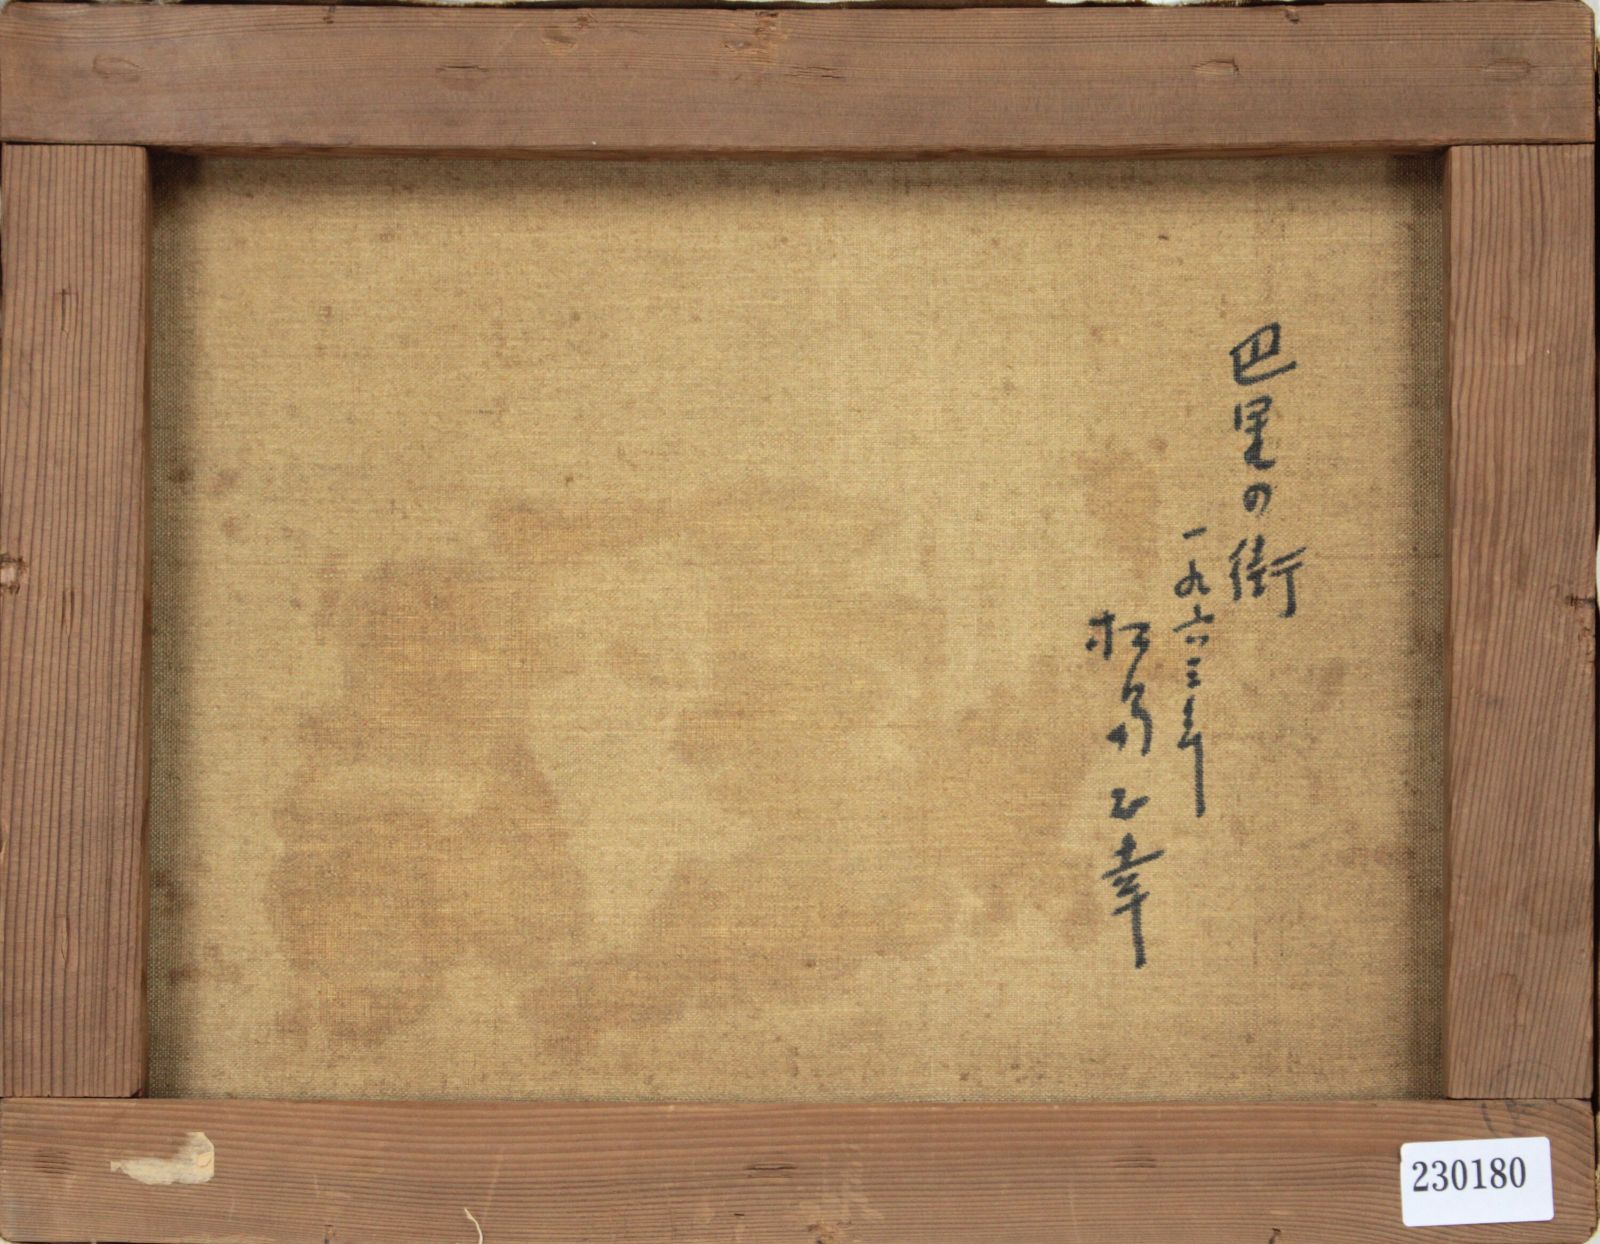 巴里の街
一九六三年
幸
230180